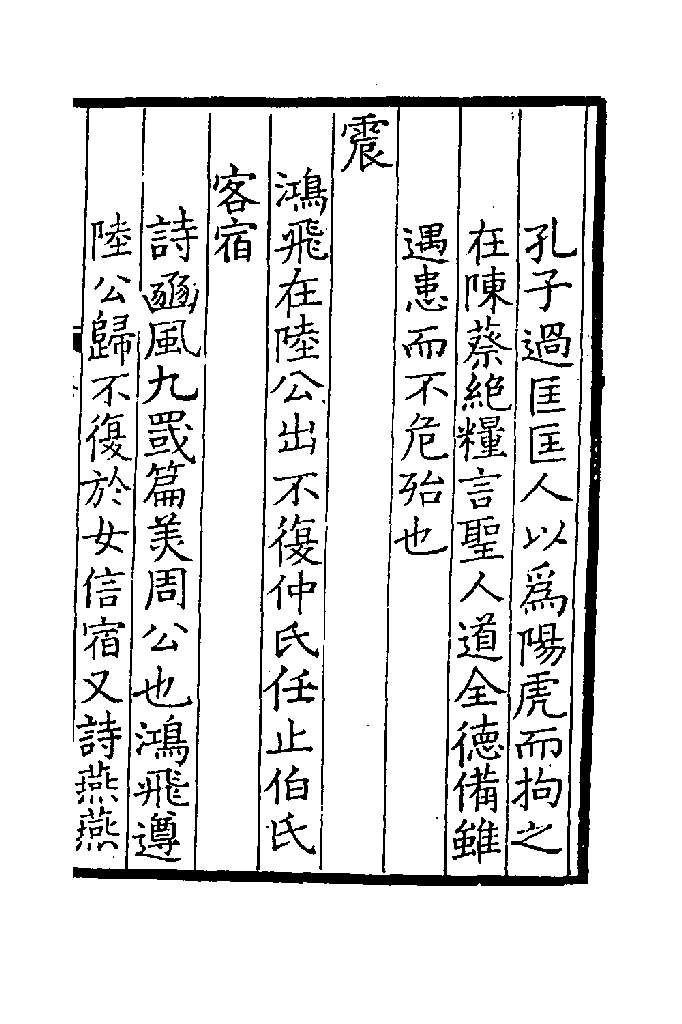 孔子過匡匡人以為陽虎而拘之
在陳蔡絶糧言聖人道全德備雖
遇患而不危殆也
震
鴻飛在陸公出不復仲氏任止伯氏
客宿
詩豳風九罭篇美周公也鴻飛遵
陸公歸不復於女信宿又詩燕燕